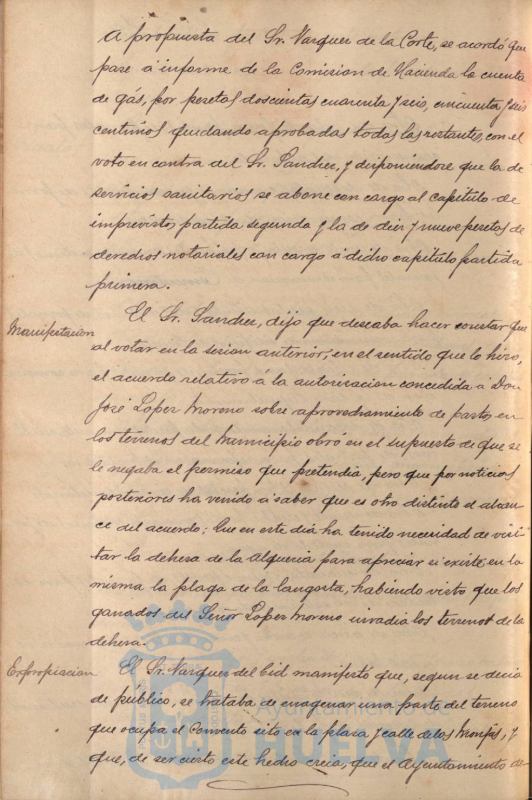 A propuesta del Sr. Vazquez de la Corte, se acordó que
pase á informe de la Comision de Hacienda la cuenta
de gás, por pesetas doscientas cuarenta y seis, cincuenta y seis
centimos quedando aprobadas todas las restantes, con el
voto en contra del Sr. Sanchez, y disponiéndose que la de
servicios sanitarios se abone con cargo al capitulo de
imprevistos partida segunda y la de diez y nueve pesetas de
derechos notariales con cargo á dicho capitulo partida
primera.
Manifestacion
El Sr. Sanchez, dijo que deseaba hacer constar que
al votar en la sesion anterior, en el sentido que lo hizo,
el acuerdo relativo á la autorizacion concedida á Don
José Lopez Moreno sobre aprovechamiento de pastos en
los terrenos del Municipio obró en el supuesto de que se
le negaba el permiso que pretendia, pero que por noticias
posteriores ha venido á saber que es otro distinto el alcan-
ce del acuerdo; Que en este dia ha tenido necesidad de visi-
tar la dehesa de la Alqueria para apreciar si existe en la
misma la plaga de la langosta, habiendo visto que los
ganados del Señor Lopez Moreno invadia los terrenos de la
dehesa.
Expropiacion
El Sr. Vazquez del Cid manifestó que, segun se decia
de público, se trataba de enagenar una parte del terreno
que ocupa el Convento sito en la plaza y calle de las Monjas, y
que, de ser cierto este hecho creia, que el Ayuntamiento de-
Ayuntamiento de
HUELVA